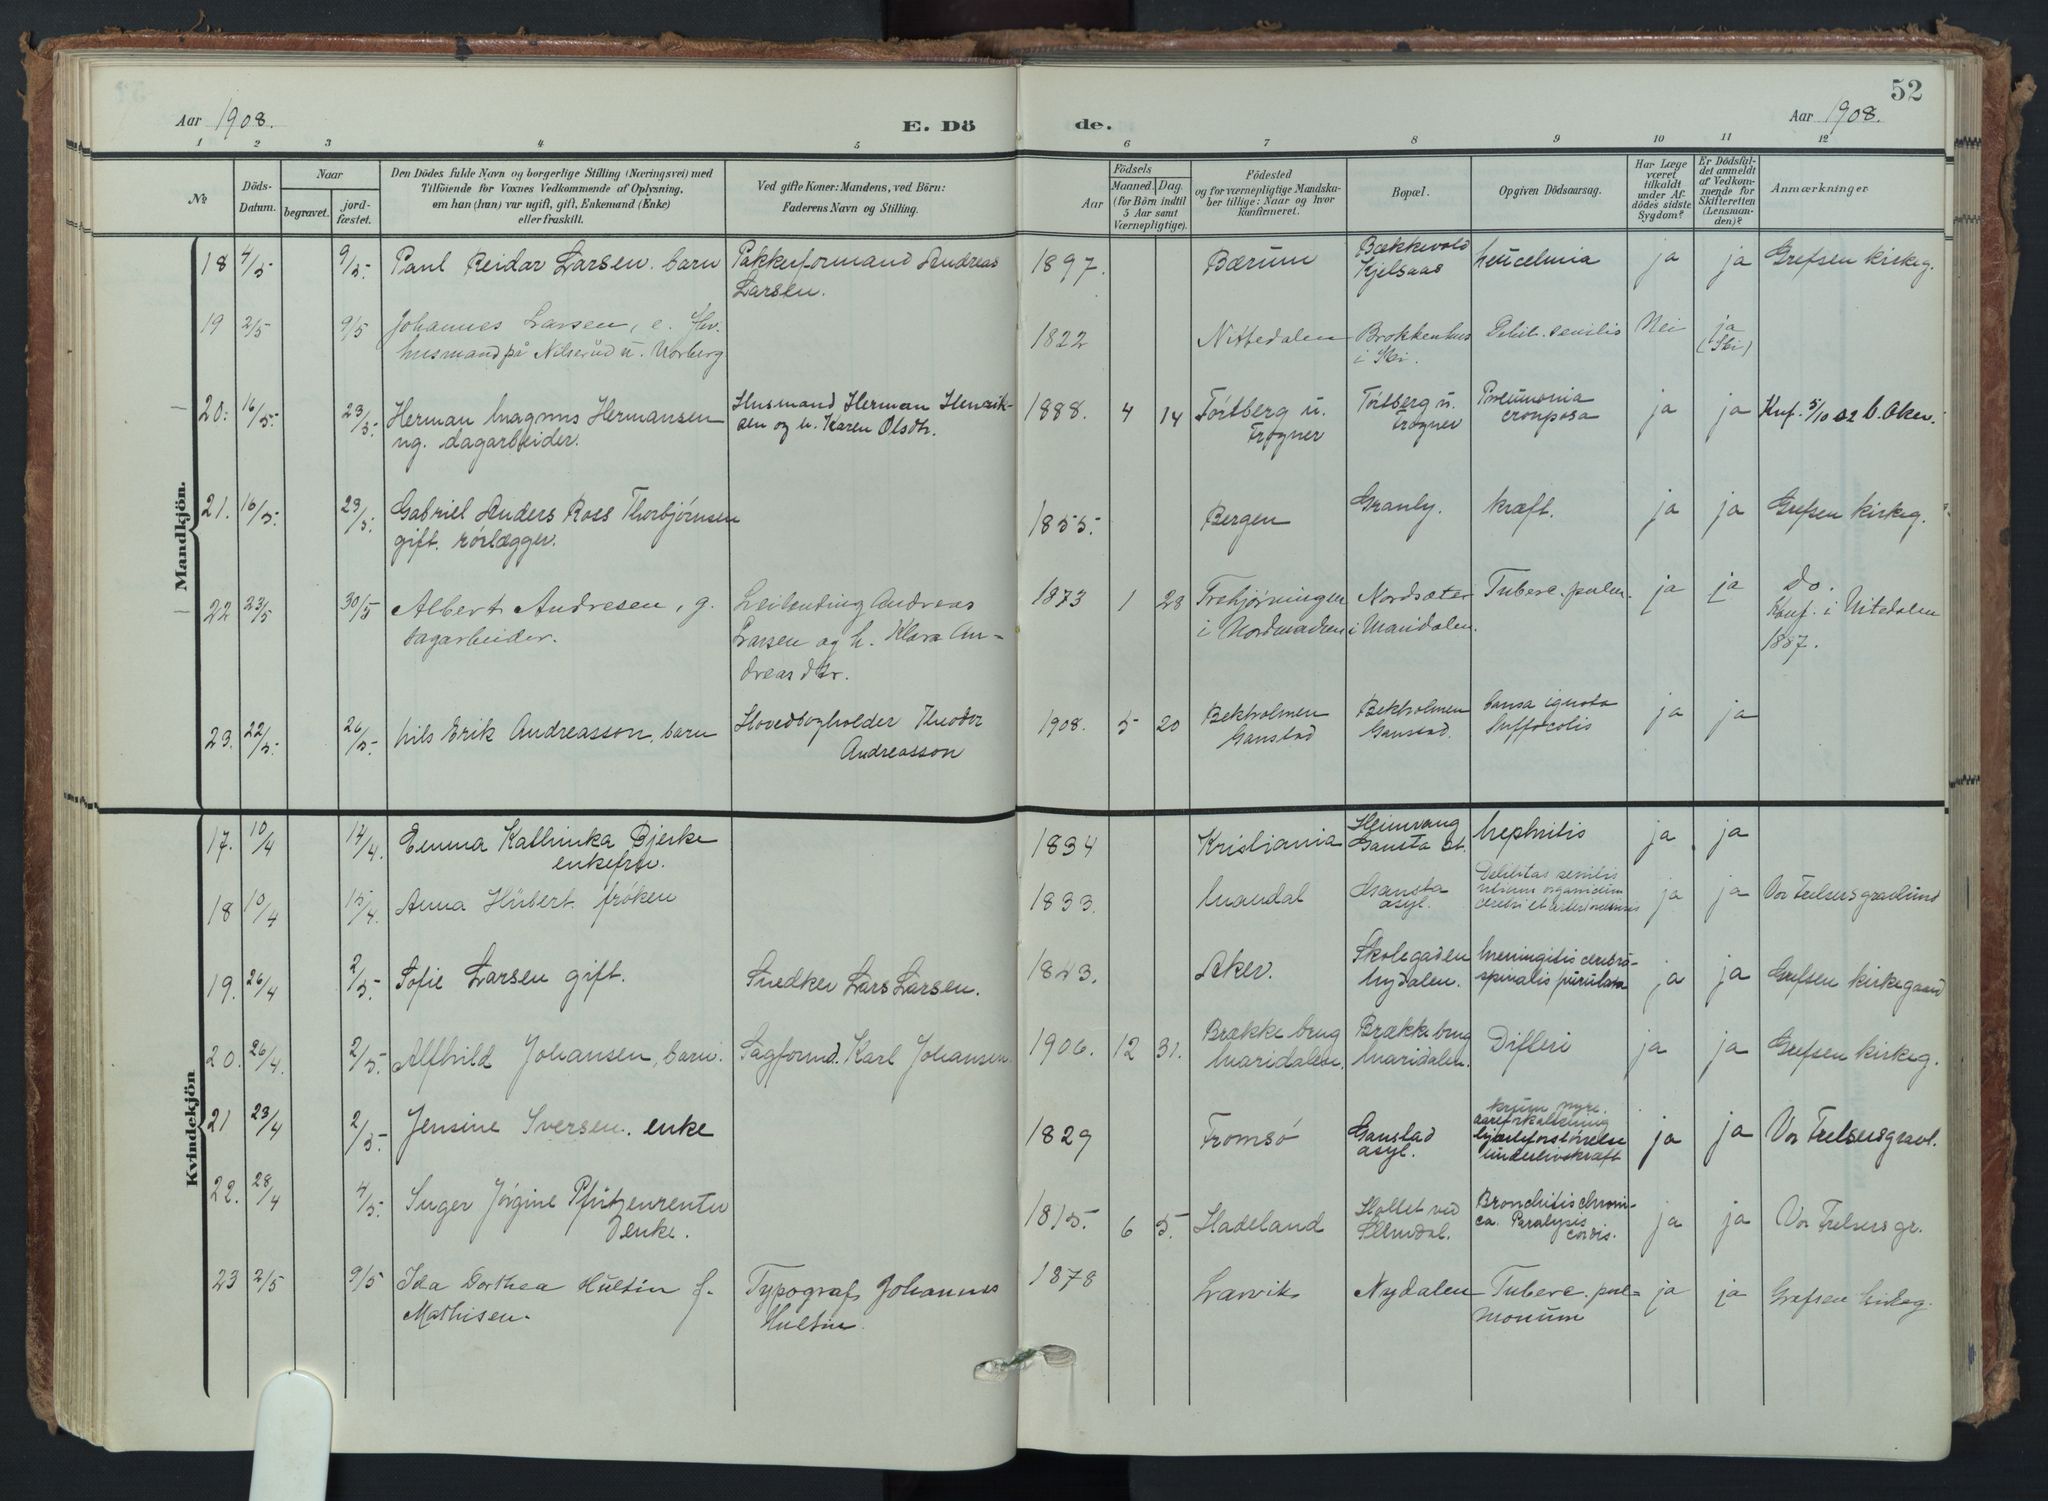 52
Aar 1908.
E. Dö
de.
Aar 1908.
1 2 3 4 5 6 7 8 9 10 11 12
No
Döds-Datum.
Naar
begravet.
jord-fæstet.
Den Dödes fulde Navn og borgerlige Stilling (Næringsvei) med
Tilföiende for Voxnes Vedkommende af Oplysning,
om han (hun) var ugift, gift, Enkemand (Enke)
eller fraskilt.
Ved gifte Koner: Mandens, ved Börn:
Faderens Navn og Stilling.
Födsels
Aar
Maaned. Dag.
(for Börn indtil
5 Aar samt
Værnepligtige).
Födested
og for værnepligtige Mandska-
ber tillige: Naar og hvor
konfirmeret.
Bopæl.
Opgiven Dödsaarsag.
Har Læge
været
tilkaldt
under Af-
dödes sidste
Sygdom?
Er Dödsfal-
det anmeldt
af Vedkom-
mende for
Skifteretten
(Lensman-
den)?
Anmærkninger
Mandkjön.
18 4/5 9/5. Paul Reidar Larsen. barn Pakkeformand Andreas 1897. Bærum Bækkevold ja ja Grefsen kirkeg.
Larsen. Kjelsaas
19 2/5 9/5 Johannes Larsen, e. 1822 Nittedalen Brokkenhus Debil. senilis Nei ja
husmand på Nilserud u. i Ski. (Ski)
20. 16/5. 23/5. Herman Magnus Hermansen Husmand Herman Henrik- 1888. 4 14 u. u. Pneumonia ja ja Knf. 5/10 02 b. Aker.
ug. dagarbeider. sen og h. Karen Olsdtr. Frogner Frogner crouposa
21. 16/5. 23/5. Gabriel Anders Ross Thorbjørnsen 1855. Bergen Granly. kræft. ja ja Grefsen kirkeg.
gift. rørlægger.
22 23/5 30/5 Albert Andresen, g. Leilending Andreas 1873 1 28 Nordsæter Tuberc. pulm. ja ja do.
dagarbeider. Larsen og h. Klara An- i Nordmarken i Maridalen. Konf. i Nitedalen
dreasdtr. 1887.
23. 22/5. 26/5. Nils Erik Andreasson, barn Hovedbogholder Theodor 1908. 5 20 Bekholmen Bekholmen Causa ignota ja ja
Andreasson Gaustad Gaustad.
Kvindekjön
17. 10/4 14/4. Emma Kathinka Bjerke 1834 Kristiania Nephritis ja ja
enkefru. Gausta st.
18 10/4 15/4. Anna Hübert. frøken 1833. Mandal Gausta Debilitas senilis ja ja Vor Frelsers gravlund
asyl. vitium organicum
19. 26/4 2/5. Sofie Larsen gift. Snedker Lars Larsen. 1843. Aker. Skolegaden Meningitis cerebro- ja ja Grefsen kirkegaard
Nydalen. spinalis purulata
20. 26/4. 2/5. Alfhild Johansen, barn. Sagformd. Karl Johansen 1906. 12 31. Brække brug Brække brug Difteri ja ja Grefsen kirkeg.
Maridalen. Maridalen.
21 23/4 2/5. Jensine Iversen. enke 1829 Tromsø Gaustad ja ja Vor Frelsers gravl.
asyl. aareforkalkning
hjerteforstørrelse
underlivskræft
22. 28/4 4/5. Inger Jørgine Pfützenreuter 1815. 6 5. Hadeland Holtet ved Bronchitis chroni- ja ja Vor Frelsers gr.
enke. Slemdal. ca. Paralysis
cordis.
23 2/5 9/5 Ida Dorthea Hultin f. Typograf Johannes 1878 Larvik Nydalen Tuberc. pul- ja ja Grefsen kirkeg.
Mathisen. Hultin. monum